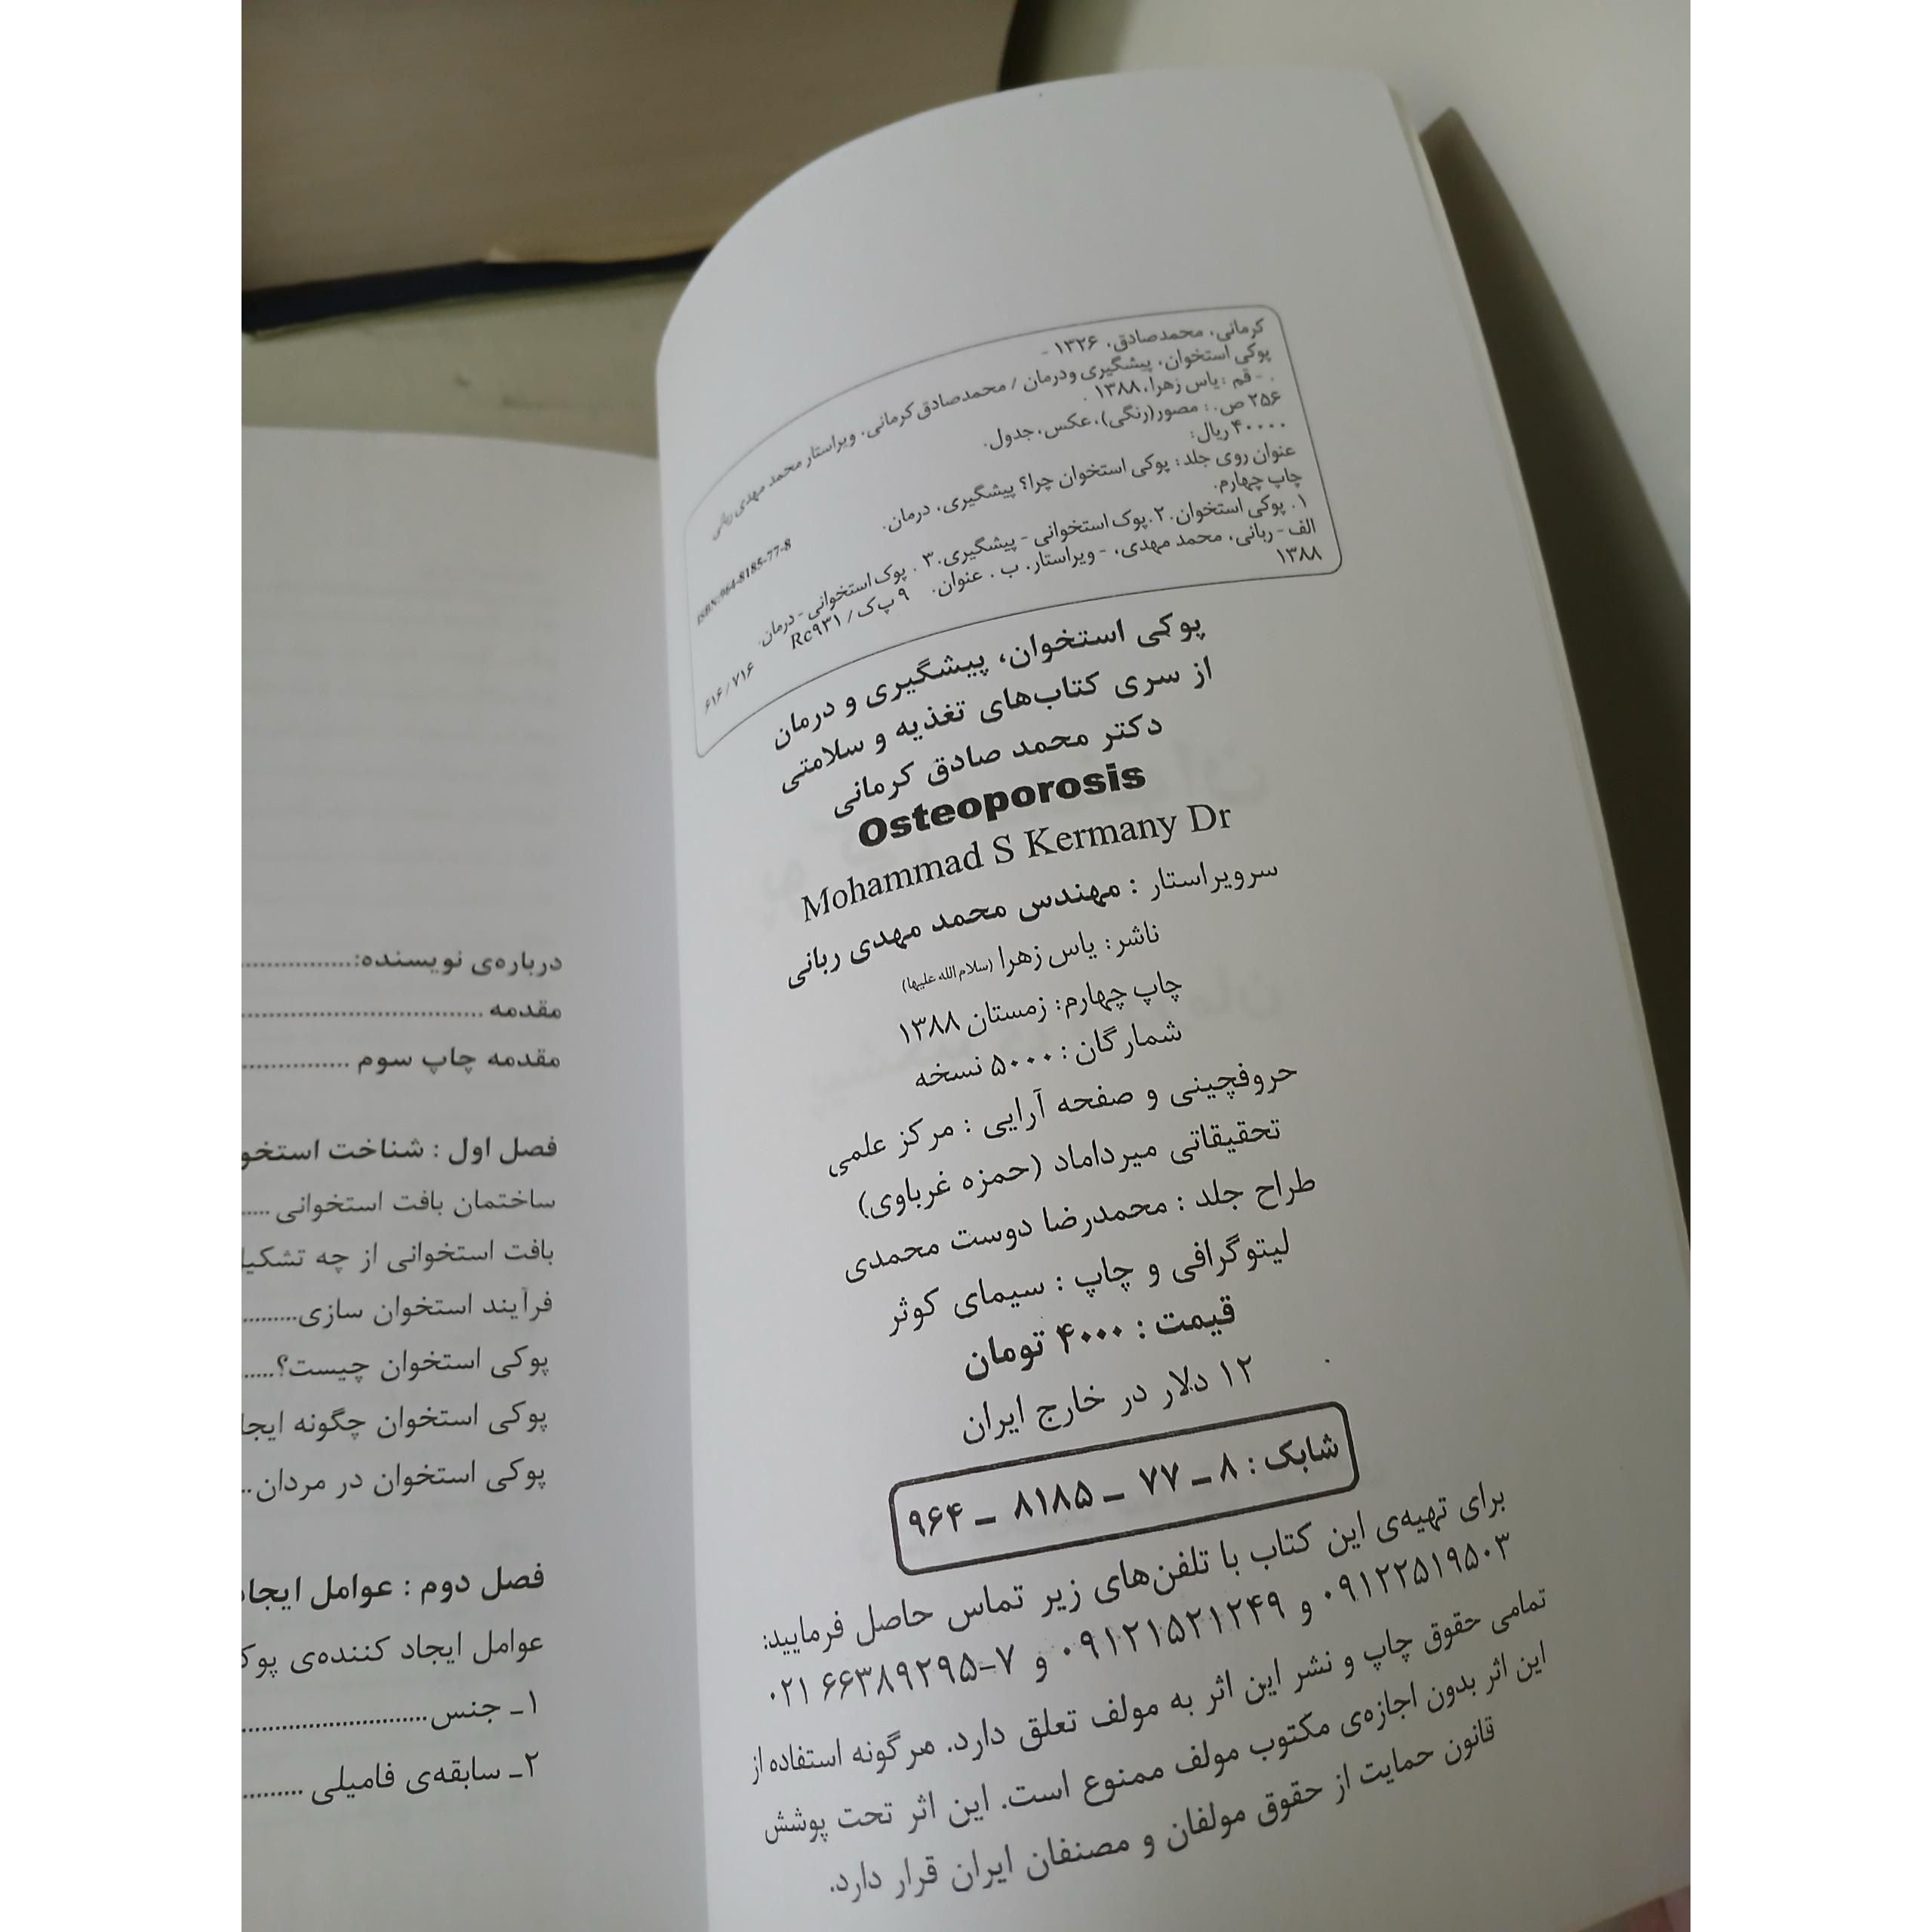 کرمانی، محمدصادق، ۱۳۲۶ -
پوکی استخوان، پیشگیری ودرمان / محمدصادق کرمانی، ویراستار محمد مهدی ربانی
. - قم : یاس زهرا، ۱۳۸۸ .
۲۵۶ ص. : مصور(رنگی)، عکس، جدول.
۴۰۰۰۰ ریال:
ISBN:964-8185-77-8
عنوان روی جلد: پوکی استخوان چرا؟ پیشگیری، درمان.
چاپ چهارم.
۱. پوکی استخوان. ۲. پوک استخوانی - پیشگیری. ۳ . پوک استخوانی - درمان.
الف - ربانی، محمد مهدی، - ویراستار. ب . عنوان.
۹ پ ک / Rc۹۳۱
۱۳۸۸
۶۱۶/۷۱۶
پوکی استخوان، پیشگیری و درمان
از سری کتاب‌های تغذیه و سلامتی
دکتر محمد صادق کرمانی
Osteoporosis
Mohammad S Kermany Dr
سرویراستار : مهندس محمد مهدی ربانی
ناشر: یاس زهرا (سلام الله علیها)
چاپ چهارم: زمستان ۱۳۸۸
شمارگان : ۵۰۰۰ نسخه
حروفچینی و صفحه آرایی : مرکز علمی
تحقیقاتی میرداماد (حمزه غرباوی)
طراح جلد : محمدرضا دوست محمدی
لیتوگرافی و چاپ : سیمای کوثر
قیمت : ۴۰۰۰ تومان
۱۲ دلار در خارج ایران
شابک : ۸ ـ ۷۷ ـ ۸۱۸۵ ـ ۹۶۴
برای تهیه‌ی این کتاب با تلفن‌های زیر تماس حاصل فرمایید:
۰۹۱۲۲۵۱۹۵۰۳ و ۰۹۱۲۱۵۲۱۲۴۹ و ۷-۶۶۳۸۹۲۹۵ ۰۲۱
تمامی حقوق چاپ و نشر این اثر به مولف تعلق دارد. هرگونه استفاده از
این اثر بدون اجازه‌ی مکتوب مولف ممنوع است. این اثر تحت پوشش
قانون حمایت از حقوق مولفان و مصنفان ایران قرار دارد.
درباره‌ی نویسنده:
مقدمه
مقدمه چاپ سوم
فصل اول : شناخت استخو
ساختمان بافت استخوانی
بافت استخوانی از چه تشکیل
فرآیند استخوان سازی
پوکی استخوان چیست؟
پوکی استخوان چگونه ایجا
پوکی استخوان در مردان
فصل دوم : عوامل ایجاد
عوامل ایجاد کننده‌ی پوک
۱ـ جنس
۲ـ سابقه‌ی فامیلی